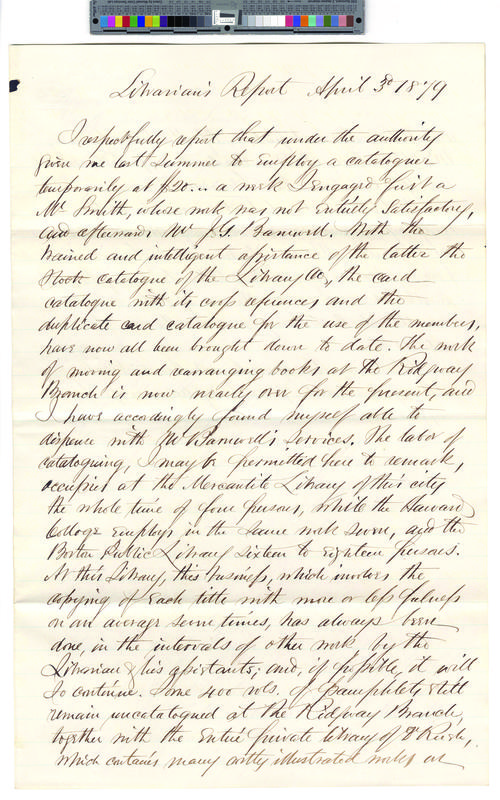 Librarian's Report April 3d 1879
I respectfully report that under the authority
given me last Summer to employ a cataloguer
temporarily at $20... a week I engaged first a
Mr Smith, whose work was not entirely satisfactory,
and afterwards Mr J. G. Barnwell. With the
trained and intelligent assistance of the latter the
Stock catalogue of the Library Co., the card
catalogue with its cross references and the
duplicate card catalogue for the use of the members,
have now all been brought down to date. The work
of moving and rearranging books at the Ridgway
Branch is now nearly over for the present, and
I have accordingly found myself able to
dispense with Mr Barnwell's Services. The labor of
cataloguing, I may be permitted here to remark,
occupies at the Mercantile Library of this city
the whole time of four persons, while the Harvard
College employs in the same work seven, and the
Boston Public Library sixteen to eighteen persons.
At this Library, this business, which involves the
copying of each title with more or less fulness
on an average seven times, has always been
done, in the intervals of other work, by the
Librarian & his assistants; and, if possible, it will
so continue. Some 400 vols. of Pamphlets still
remain uncatalogued at the Ridgway Branch,
together with the entire private library of Dr Rush,
which contains many costly illustrated works on